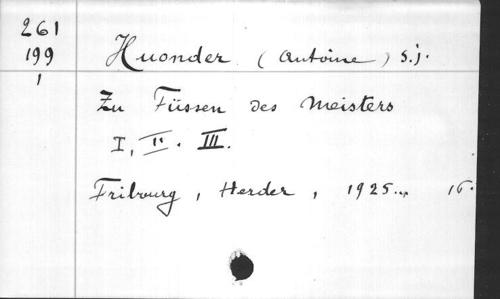 261
199
1
Huonder (Antoine) S.j.
Zu Füssen des Meisters
I, II. III.
Fribourg, Herder, 1925.. 16.